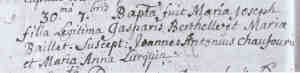 30 ma 7 bris Baptā fuit Maria Joseph
filia Legitima Gasparis Berthelleret Maria
Baillet. Suscept: Joannes Antonius Chaufour
et Maria Anna Lurquin